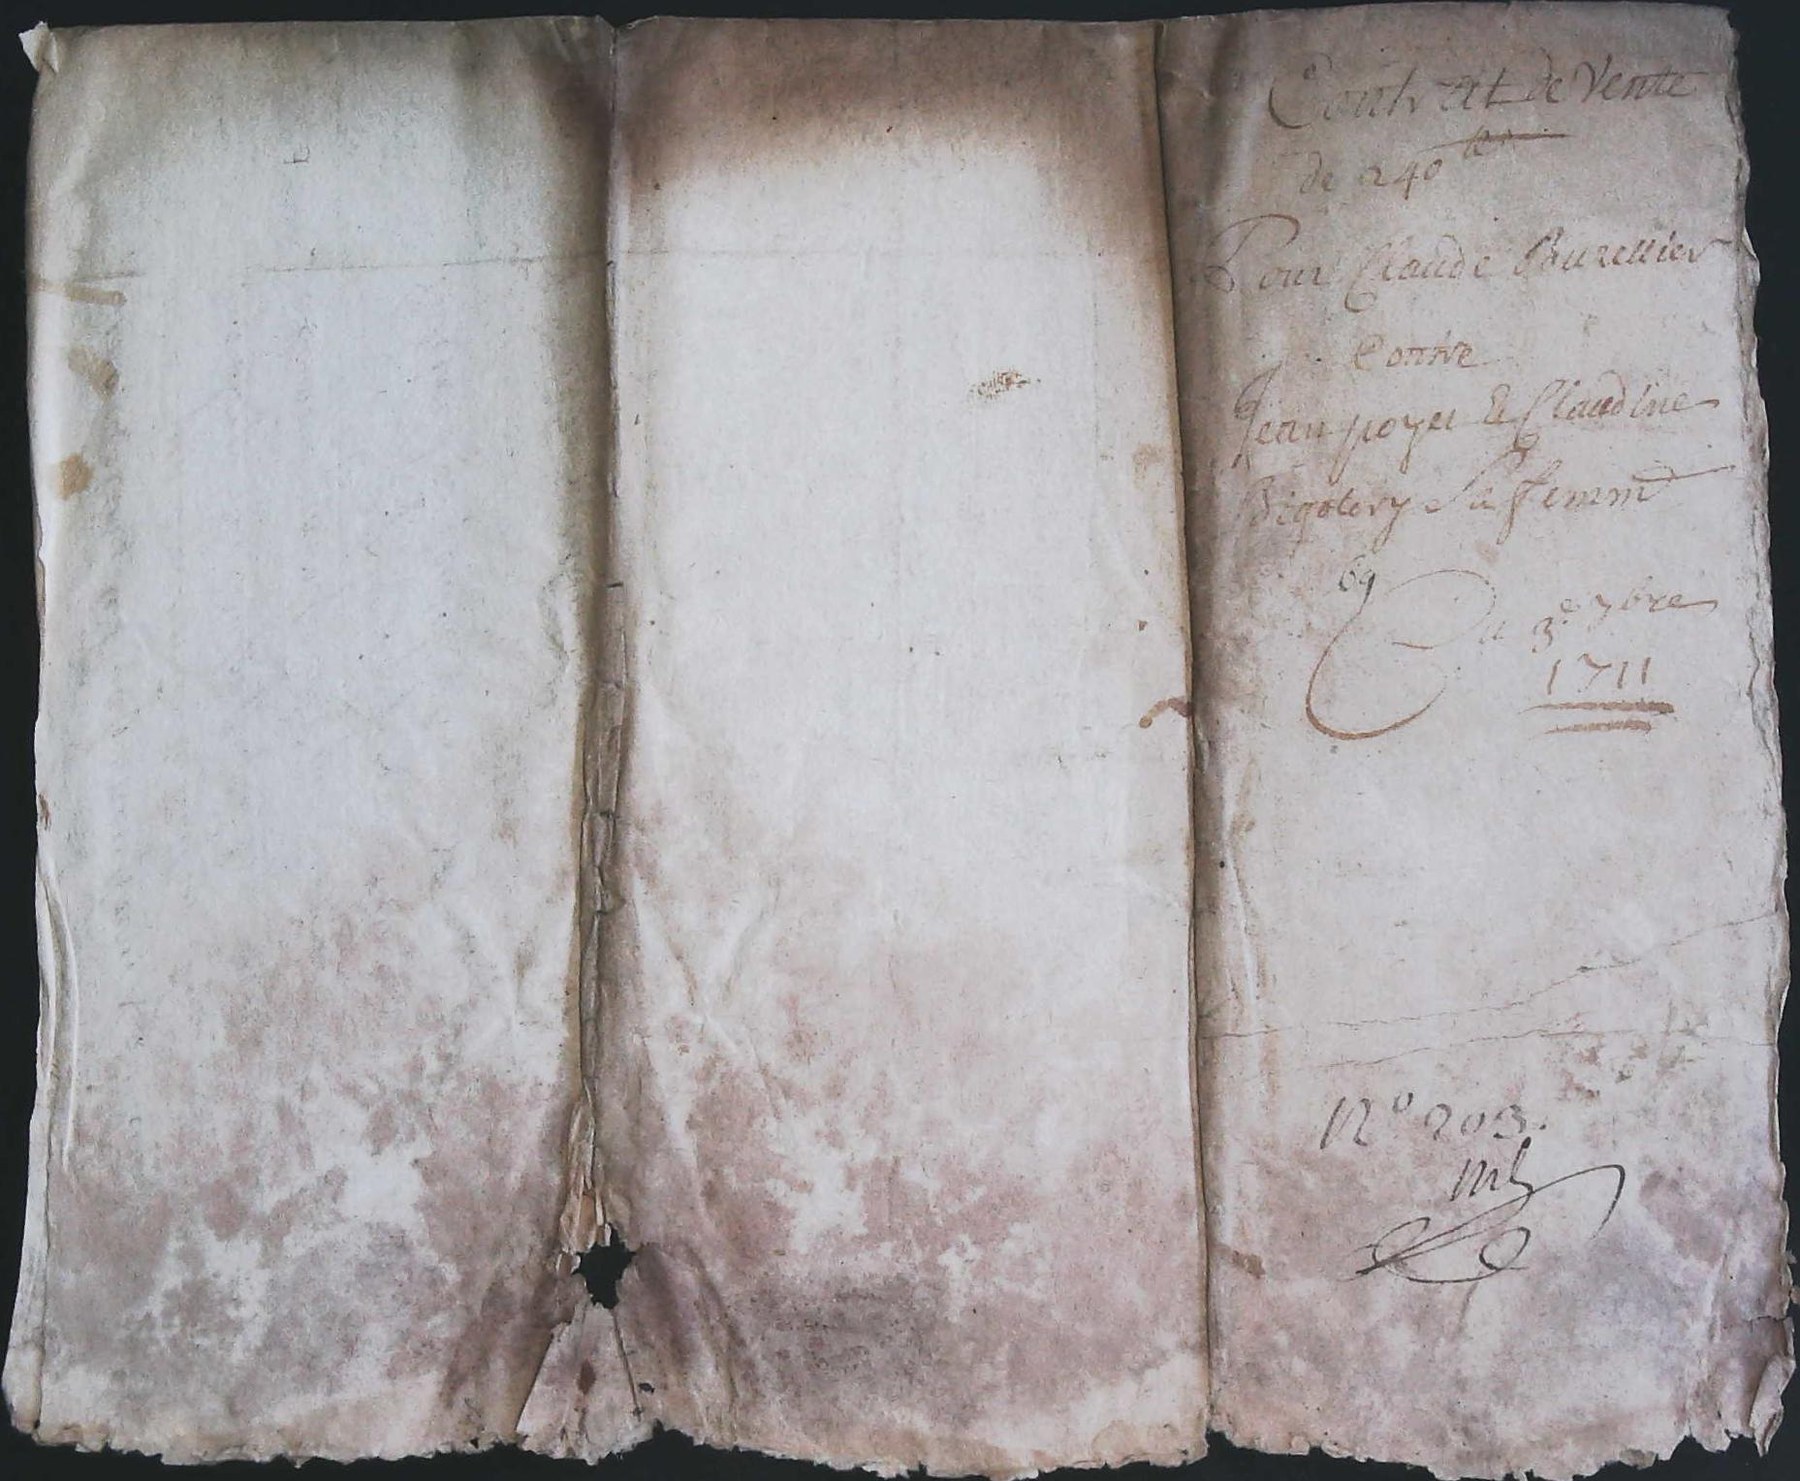 Contrat de Vente
de 240 lt
Pour Claude Bourellier
Contre
Jean poyet & Claudine
Bigotery Sa ffemme
69
Du 3e 7bre
1711
No 203.